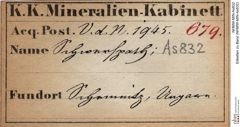 K.K. Mineralien-Kabinett
Acq. Post. V.d.N. 1945. 679.
Name Schwerspath, As832
Fundort Schemnitz, Ungarn.